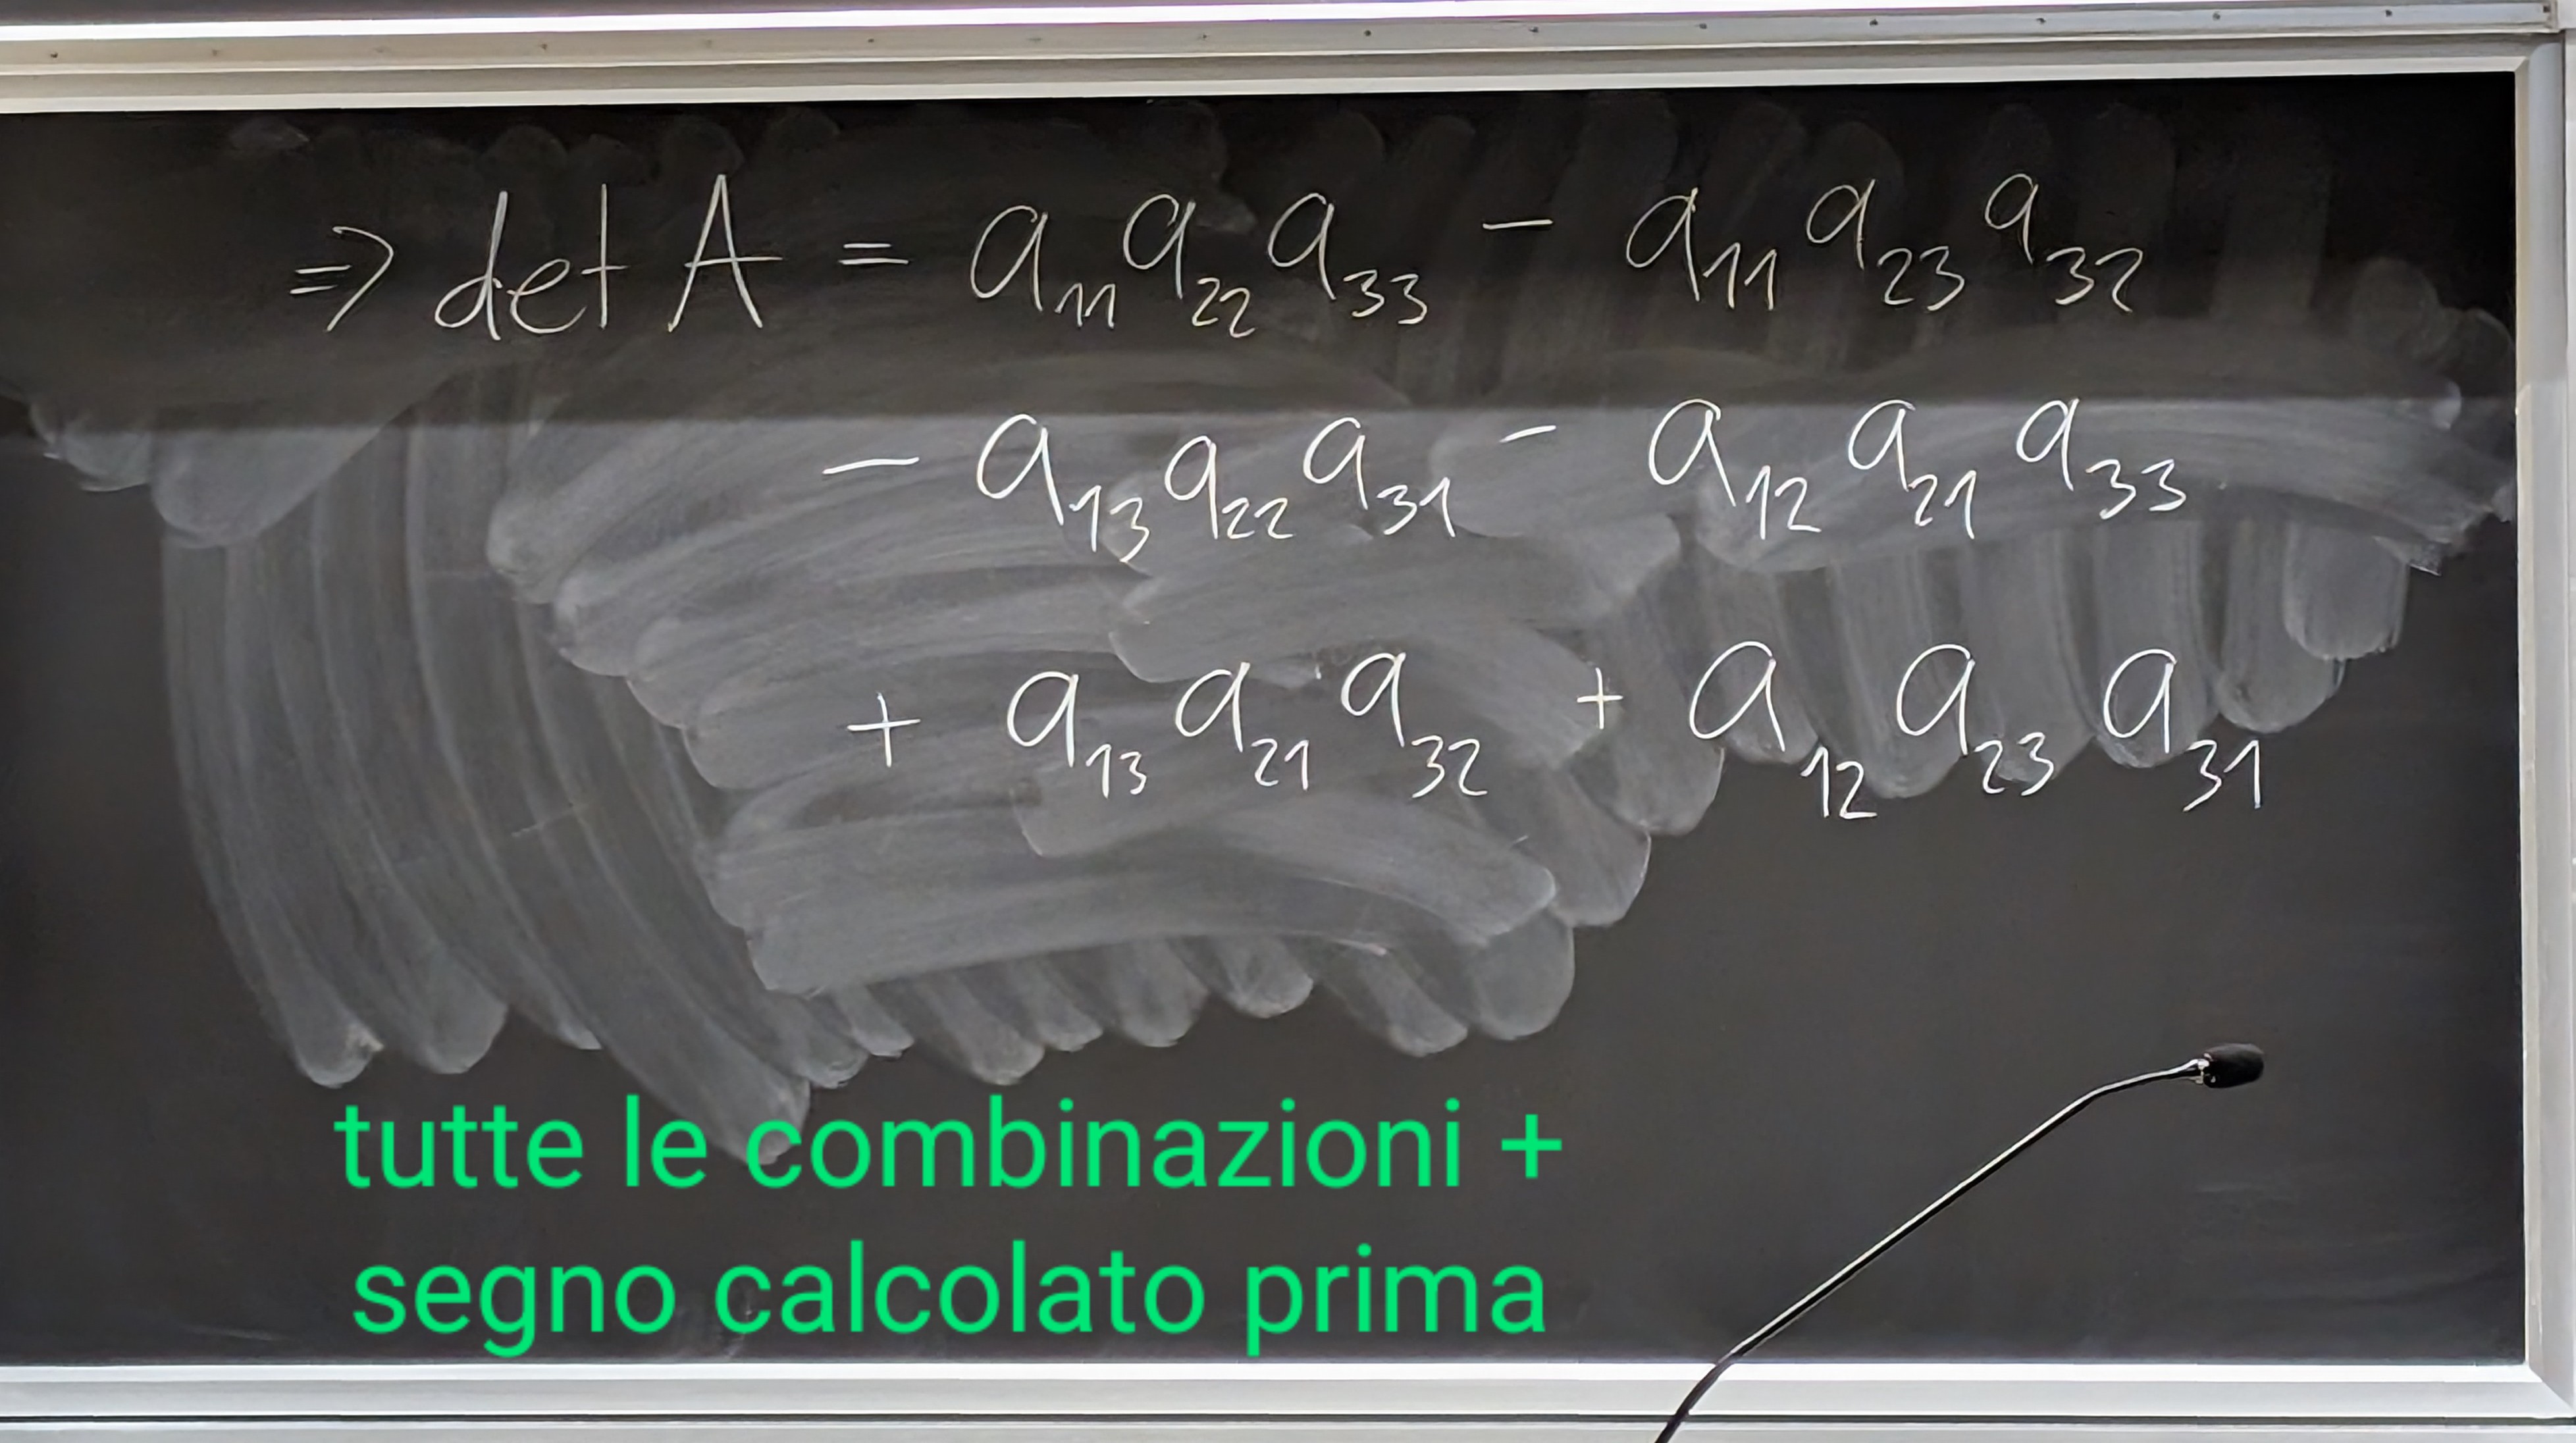 ⇒ det A = a₁₁ a₂₂ a₃₃ − a₁₁ a₂₃ a₃₂
− a₁₃ a₂₂ a₃₁ − a₁₂ a₂₁ a₃₃
+ a₁₃ a₂₁ a₃₂ + a₁₂ a₂₃ a₃₁
tutte le combinazioni +
segno calcolato prima